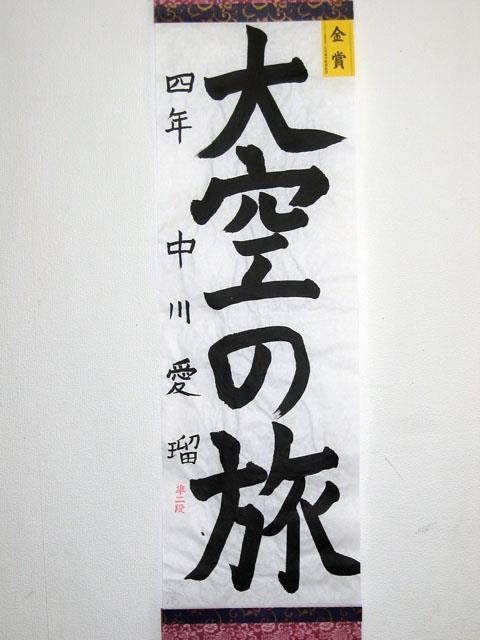 金賞
大空の旅
四年 中川愛瑠
準二段